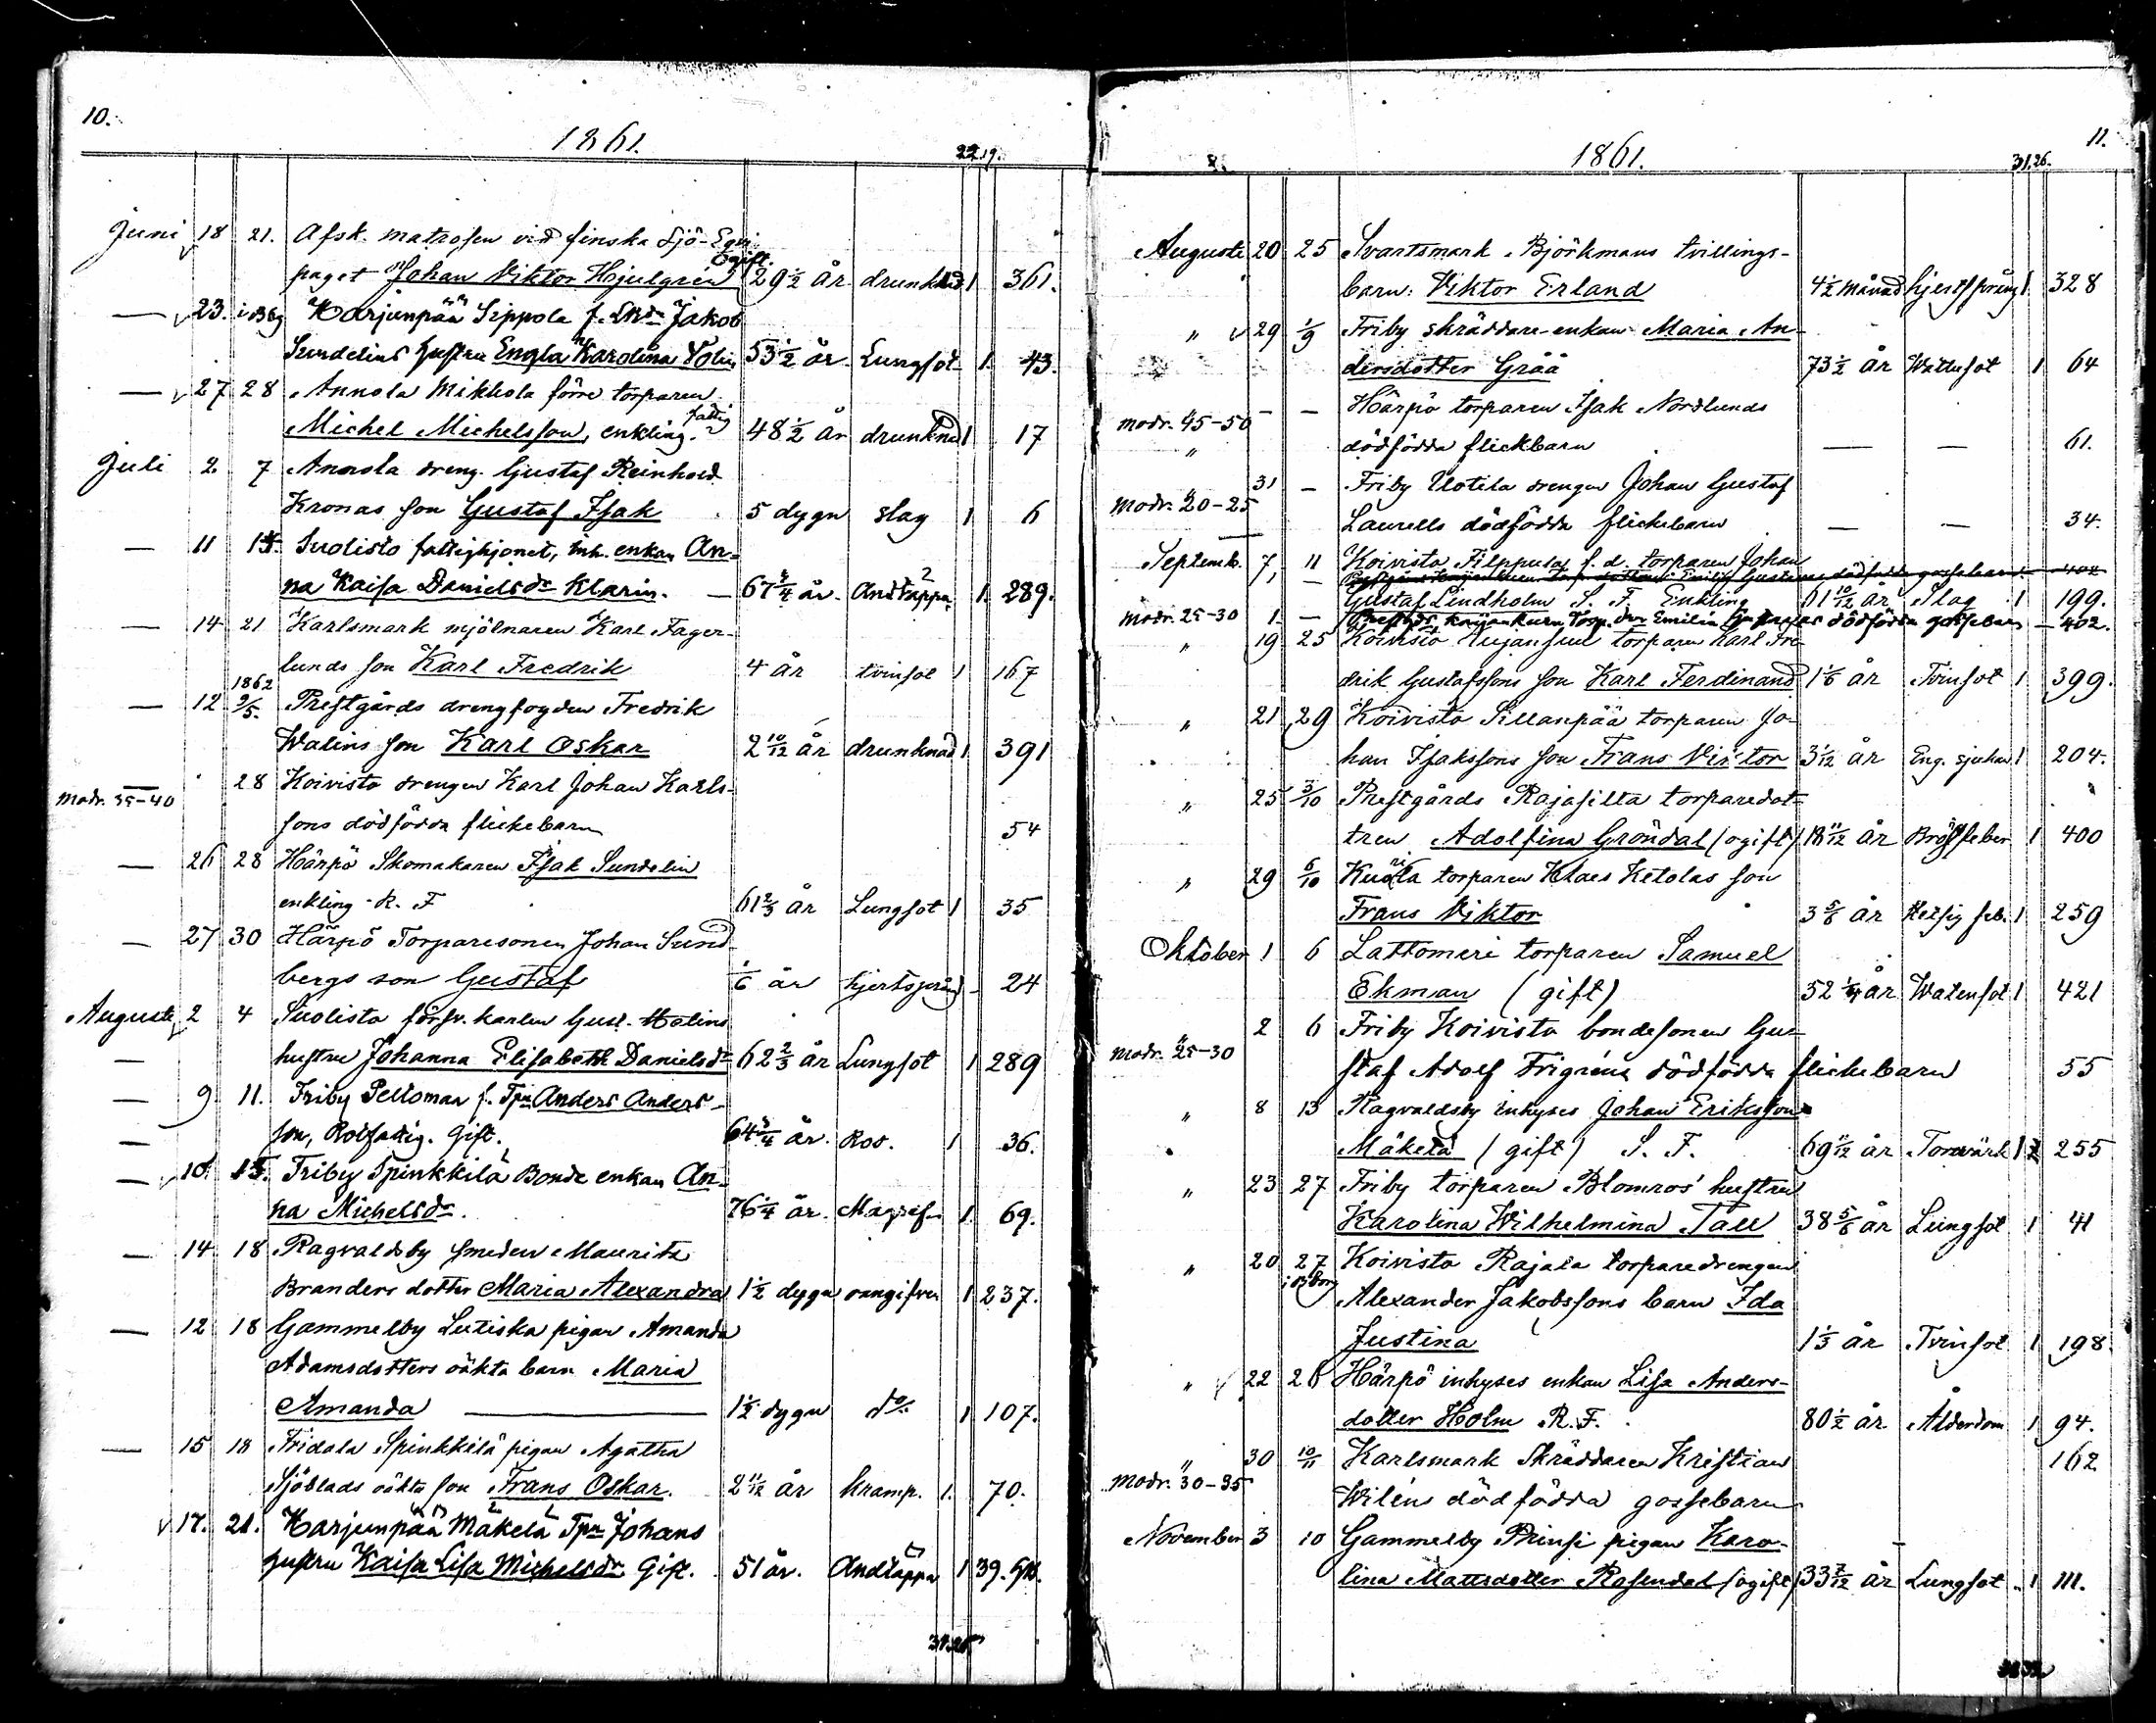 10.
1861.
22 19.
Juni 18 21. Afsk. matrosen vid finska Sjö-Equi-
paget Johan Viktor Hjulgren Ogift. 29 1/2 år drunknad 1 361.
— 23. i Bbg Harjunpää Sippola f. Jakob
Sundelius hustru Engla Karolina 53 1/2 år Lungsot 1. 43.
— 27 28 Annola Mikkola förre torparen
Michel Michelsson, enkling. fattig 48 1/2 år drunknad 1 17
Juli 2 7 Annola dreng. Gustaf Reinhold
Kronas son Gustaf Isak 5 dygn slag 1 6
— 11 14. Suolisto fattighjonet, inh. enkan An-
na Kaisa Danielsdr Klarin. — 67 3/4 år. Andtäppa 1. 289.
— 14 21 Karlsmark mjölnaren Karl Fager-
lunds son Karl Fredrik 4 år tvinsot 1 167
1862
— 12 9/5. Prestgårds drengfogden Fredrik
Walins son Karl Oskar 2 10/12 år drunknad 1 391
— 28 Koivisto drengen Karl Johan Karls-
Modr. 35-40
sons dödfödda flickebarn 54
— 26 28 Härpö Skomakaren Isak Sundelin
enkling - R. F 61 2/3 år Lungsot 1 35
— 27 30 Härpö Torparesonen Johan Sund-
bergs son Gustaf 1/6 år hjertsprång - 24
Augusti 2 4 Suolisto försv. karlen Gust. Malins
— hustru Johanna Elisabeth Danielsdr 62 2/3 år Lungsot 1 289
— 9 11. Friby Peltomaa f. Tpn Anders Anders-
— son, Rotfattig. Gift. 64 3/4 år. Ros. 1 36.
— 10. 15. Friby Spinkkilä Bonde enkan An-
na Michelsdr. 76 1/4 år. Magref. 1. 69.
— 14 18 Ragvaldsby smeden Mauritz
Branders dotter Maria Alexandra 1 1/2 dygn oangifven 1 237.
— 12 18 Gammelby Lutiska pigan Amanda
Adamsdotters oäkta barn Maria
Amanda — 1 1/2 dygn do 1 107.
— 15 18 Fridala Spinkkilä pigan Agatha
Sjöblads oäkta son Frans Oskar. 2 11/12 år kramp. 1. 70.
17. 21. Harjunpää Mäkelä Tpn Johans
hustru Kaisa Lisa Michelsdr. Gift. 51 år. Andtäppa 1 39.
11.
1861.
31. 26.
Augusti 20 25 Svartsmark Björkmans tvillings-
barn: Viktor Erland 4 1/2 månad hjertsprång 1 328
" 29 1/9 Friby skräddare-enkan Maria An-
dersdotter Grää 73 1/2 år Wattusot 1 64
" — — Härpö torparen Isak Nordlunds
Modr. 45-50
" dödfödda flickbarn — — 61.
" 31 — Friby Uotila drengen Johan Gustaf
Modr. 20-25
Laurells dödfödda flickebarn — — 34.
Septemb. 7 11 Koivisto Filppulas f. d. torparen Johan
Gustaf Lindholm S. F. Enkling 61 10/12 år Slag 1 199.
Modr. 25-30 1. — Prestgårds Torp. dtr Emilia dödfödda gossebarn — 402.
" 19 25 Koivisto torparen Karl Fre-
drik Gustafssons son Karl Ferdinand 1 1/6 år Tvinsot 1 399.
" 21 29 Koivisto Sillanpää torparen Jo-
han Isakssons son Frans Viktor 3 1/12 år Eng. sjukan 1 204.
" 25 3/10 Prestgårds Rajasilta torparedot-
tren Adolfina Gröndal (ogift) 18 11/12 år Bröstfeber 1 400
" 29 6/10 torparen Klaes Ketolas son
Frans Viktor 3 5/6 år Hetsig feb. 1 259
Oktober 1 6 Lattomeri torparen Samuel
Ekman (gift) 52 1/4 år Watensot 1 421
" 2 6 Friby Koivisto bondesonen Gu-
Modr. 25-30
staf Adolf Frigréns dödfödda flickebarn 55
" 8 13 Ragvaldsby inhyses Johan Eriksson
Mäkelä (gift) S. F. 69 11/12 år Torrvärk 1 255
" 23 27 Friby torparen Blomros' hustru
Karolina Wilhelmina Tall 38 5/6 år Lungsot 1 41
" 20 27 Koivisto Rajala torparedrengen
i Bborg
Alexander Jakobssons barn Ida
Justina 1 1/3 år Tvinsot 1 198
" 22 28 Härpö inhyses enkan Lisa Anders-
dotter Holm R. F. 80 1/2 år Ålderdom 1 94.
" 30 10/11 Karlsmark Skräddaren Kristian 162
Modr. 30-35
Wiléns dödfödda gossebarn
November 3 10 Gammelby Prinsi pigan Karo-
lina Mattsdotter Rosendal (ogift) 33 7/12 år Lungsot 1 111.